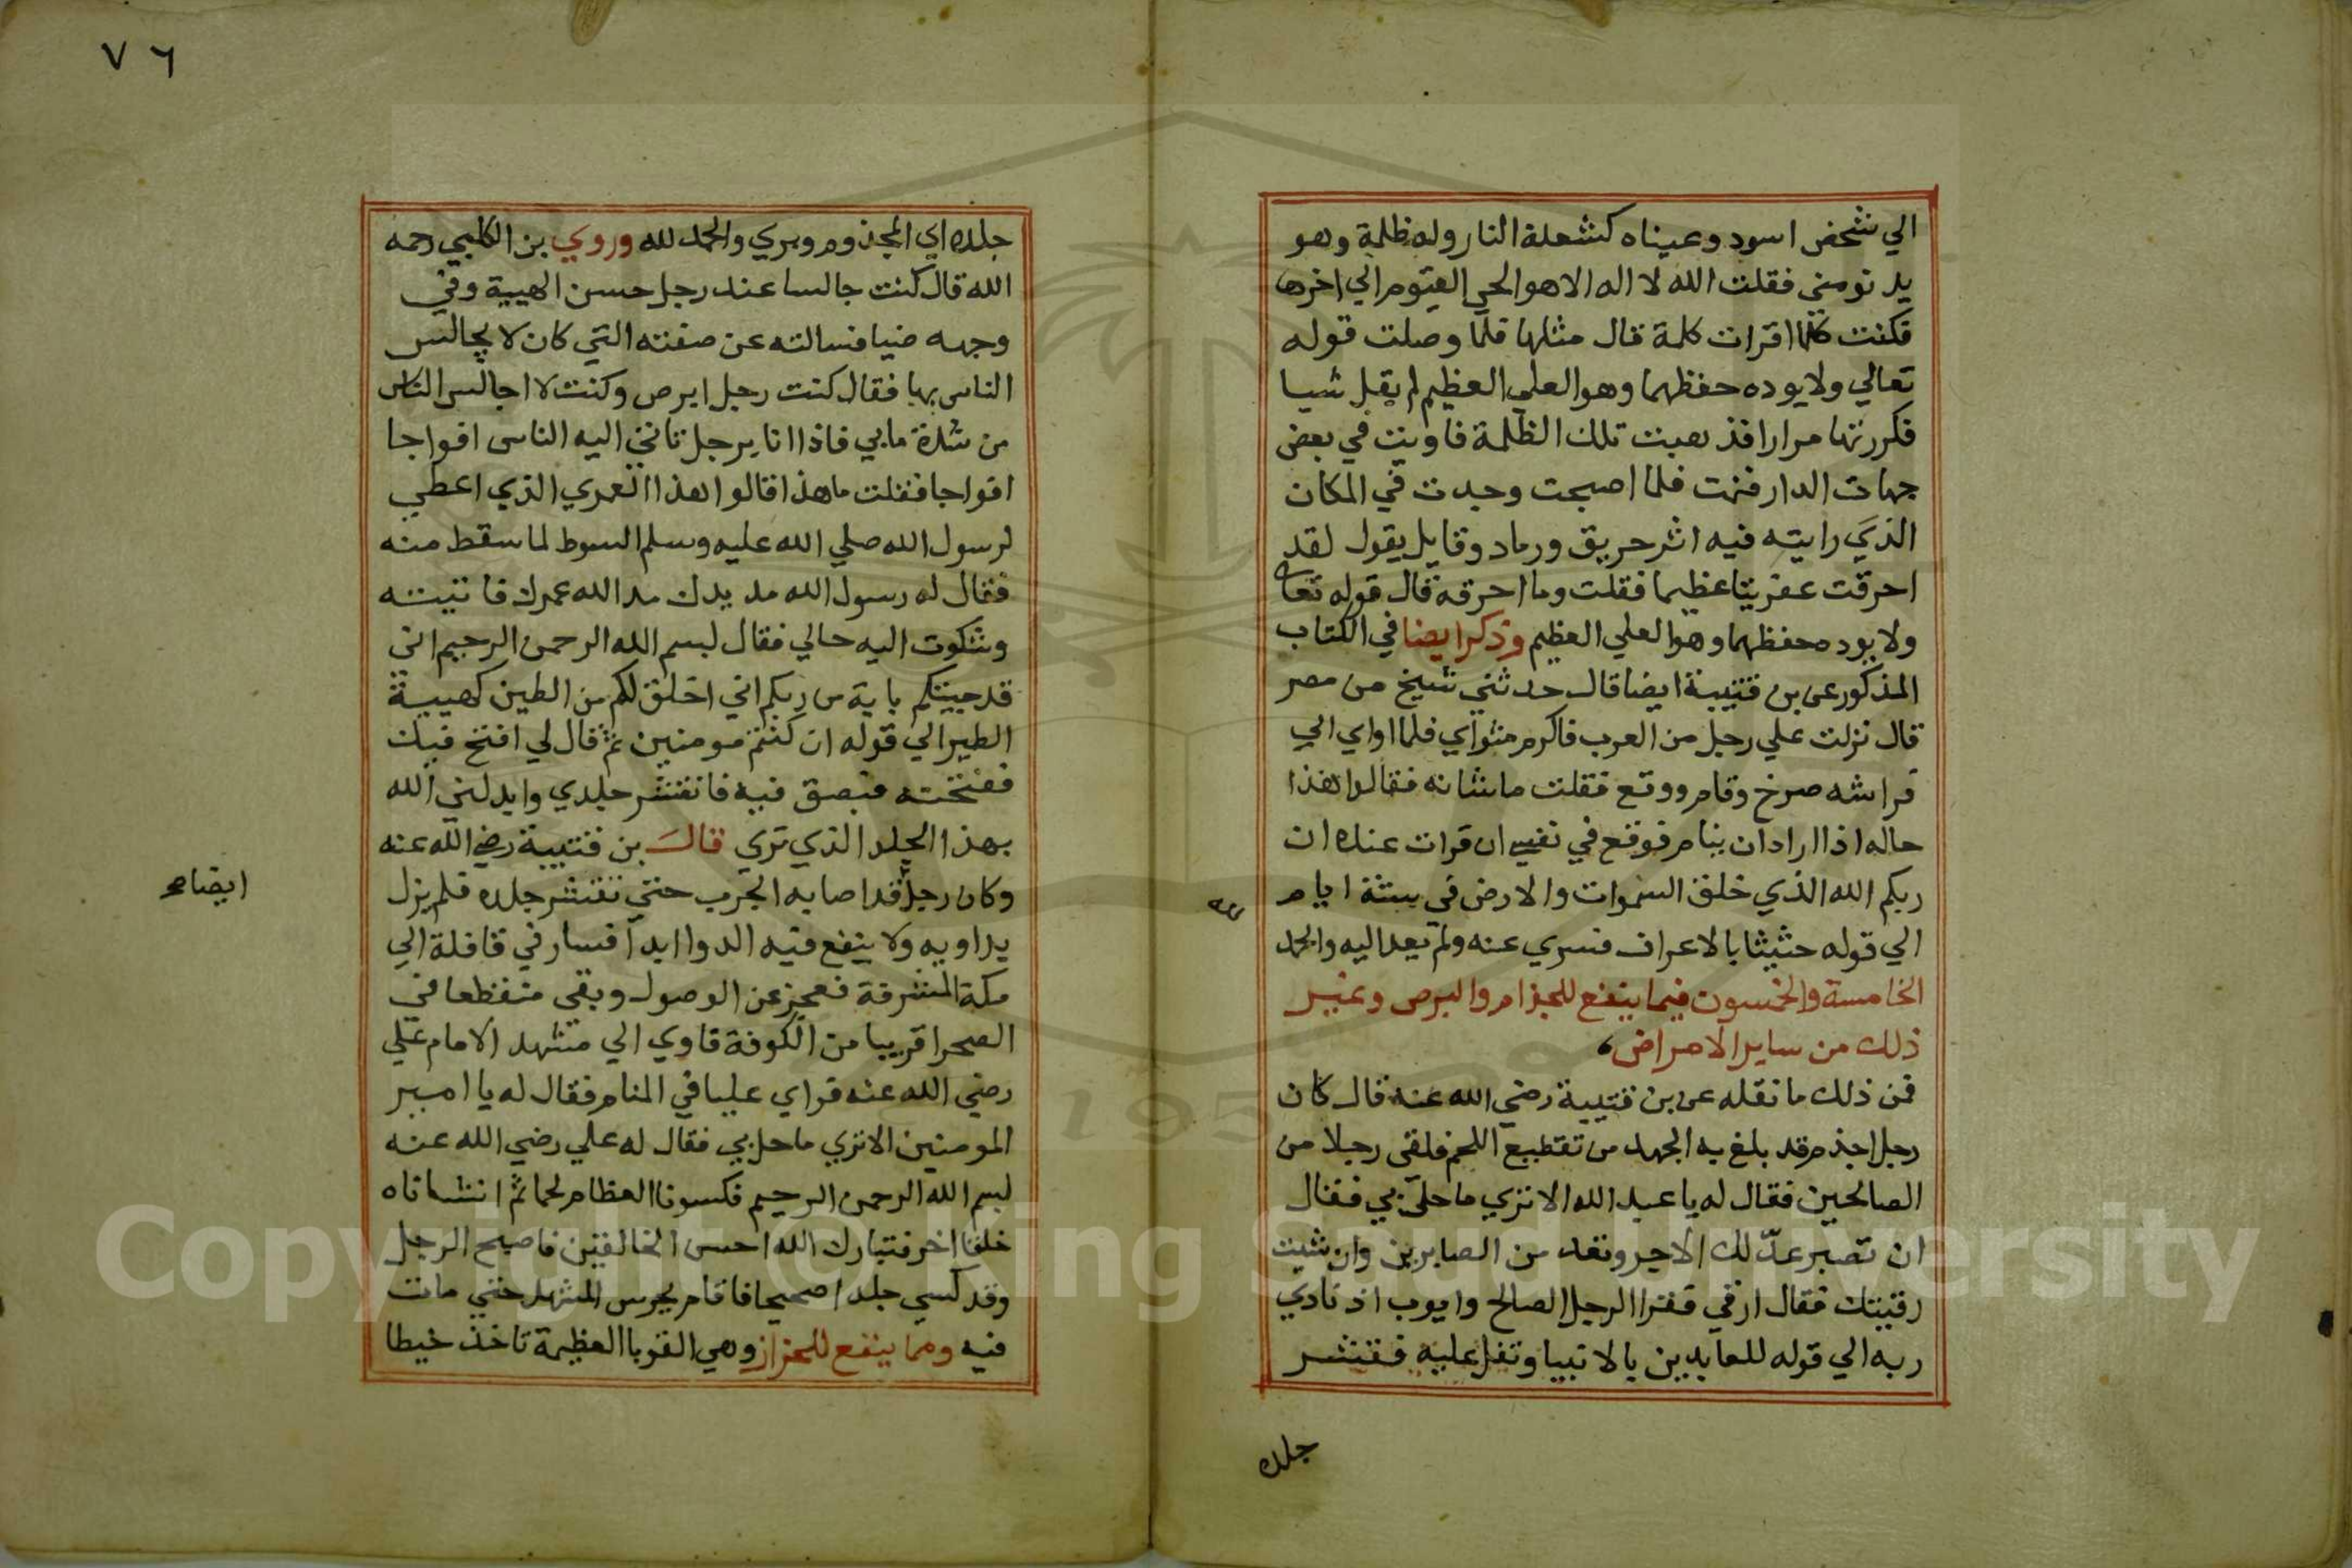 الي شخص اسود وعيناه كشعلة النار وله ظلمة وهو
يد نومني فقلت الله لا اله الا هو الحي القيوم الي اخرها
فكنت كلما قرات كلمة قال مثلها فلما وصلت قوله
تعالي ولا يوده حفظهما وهو العلي العظيم لم يقل شيا
فكررتها مرارا فذهبت تلك الظلمة فاويت في بعض
جهات الدار فنمت فلما اصبحت وجدت في المكان
الذي رايته فيه اثر حريق ورماد وقايل يقول لقد
احرقت عفريتا عظيما فقلت وما احرقه قال قوله تعا
ولا يوده حفظهما وهو العلي العظيم وذكر ايضا في الكتاب
المذكور عن بن قتيبة ايضا قال حدثني شيخ من مصر
قال نزلت علي رجل من العرب فاكرم مثواي فلما اواي الي
فراشه صرخ وقام ووقع فقلت ما شانه فقالوا هذا
حاله اذا اراد ان ينام فوقع في نفسي ان قرات عنده ان
ربكم الله الذي خلق السموات والارض في ستة ايام
الي قوله حثيثا بالاعراف فسري عنه ولم يعد اليه والحمد
الخامسة والخمسون فيما ينفع للجزام والبرص وغير
ذلك من ساير الامراض
فمن ذلك ما نقله عن بن قتيبة رضي الله عنه قال كان
رجل اجذم قد بلغ به الجهد من تقطيع اللحم فلقى رجلا من
الصالحين فقال له يا عبد الله الا تري ما حل بي فقال
ان تصبر عدّ لك الاجر وتعد من الصابرين وان شيت
رقيتك فقال ارقي فقرا الرجل الصالح وايوب اذ نادي
ربه الي قوله للعابدين بالانبيا وتفل عليه فقشر
جلده
جلده اي المجذوم وبري والحمد لله وروي بن الكلبي رحمه
الله قال كنت جالسا عند رجل حسن الهيبة وفي
وجهه ضيا فسالته عن صفته التي كان لا يجالس
الناس بها فقال كنت رجل ابرص وكنت لا اجالس الناس
من شدة ما بي فاذا انا برجل تاتي اليه الناس افواجا
افواجا فقلت ما هذا قالوا هذا العمري الذي اعطي
لرسول الله صلي الله عليه وسلم السوط لما سقط منه
فقال له رسول الله مد يدك مد الله عمرك فاتيته
وشكوت اليه حالي فقال لبسم الله الرحمن الرحيم اني
قد جيتكم باية من ربكم اني اخلق لكم من الطين كهيية
الطير الي قوله ان كنتم مومنين ثم قال لي افتح فيك
ففتحته فبصق فيه فانقشر جلدي وابدلني الله
بهذا الجلد الذي تري قال بن قتيبة رضي الله عنه
وكان رجل قد اصابه الجرب حتي تقشر جلده فلم يزل
يداويه ولا ينفع فيه الدوا ابدا فسار في قافلة الي
مكة المشرفة فعجز عن الوصول وبقى منقطعا في
الصحرا قريبا من الكوفة فاوي الي مشهد الامام علي
رضي الله عنه فراي عليا في المنام فقال له يا امير
المومنين الا تري ما حل بي فقال له علي رضي الله عنه
لبسم الله الرحمن الرحيم فكسونا العظام لحما ثم انشاناه
خلقا اخر فتبارك الله احسن الخالقين فاصبح الرجل
وقد كسي جلدا صحيحا فاقام يحرس المشهد حتي مات
فيه ومما ينفع للحزاز وهي القوبا العظيمة تاخذ خيطا
ايضا صح
٧٦
Copyright © King Saud University